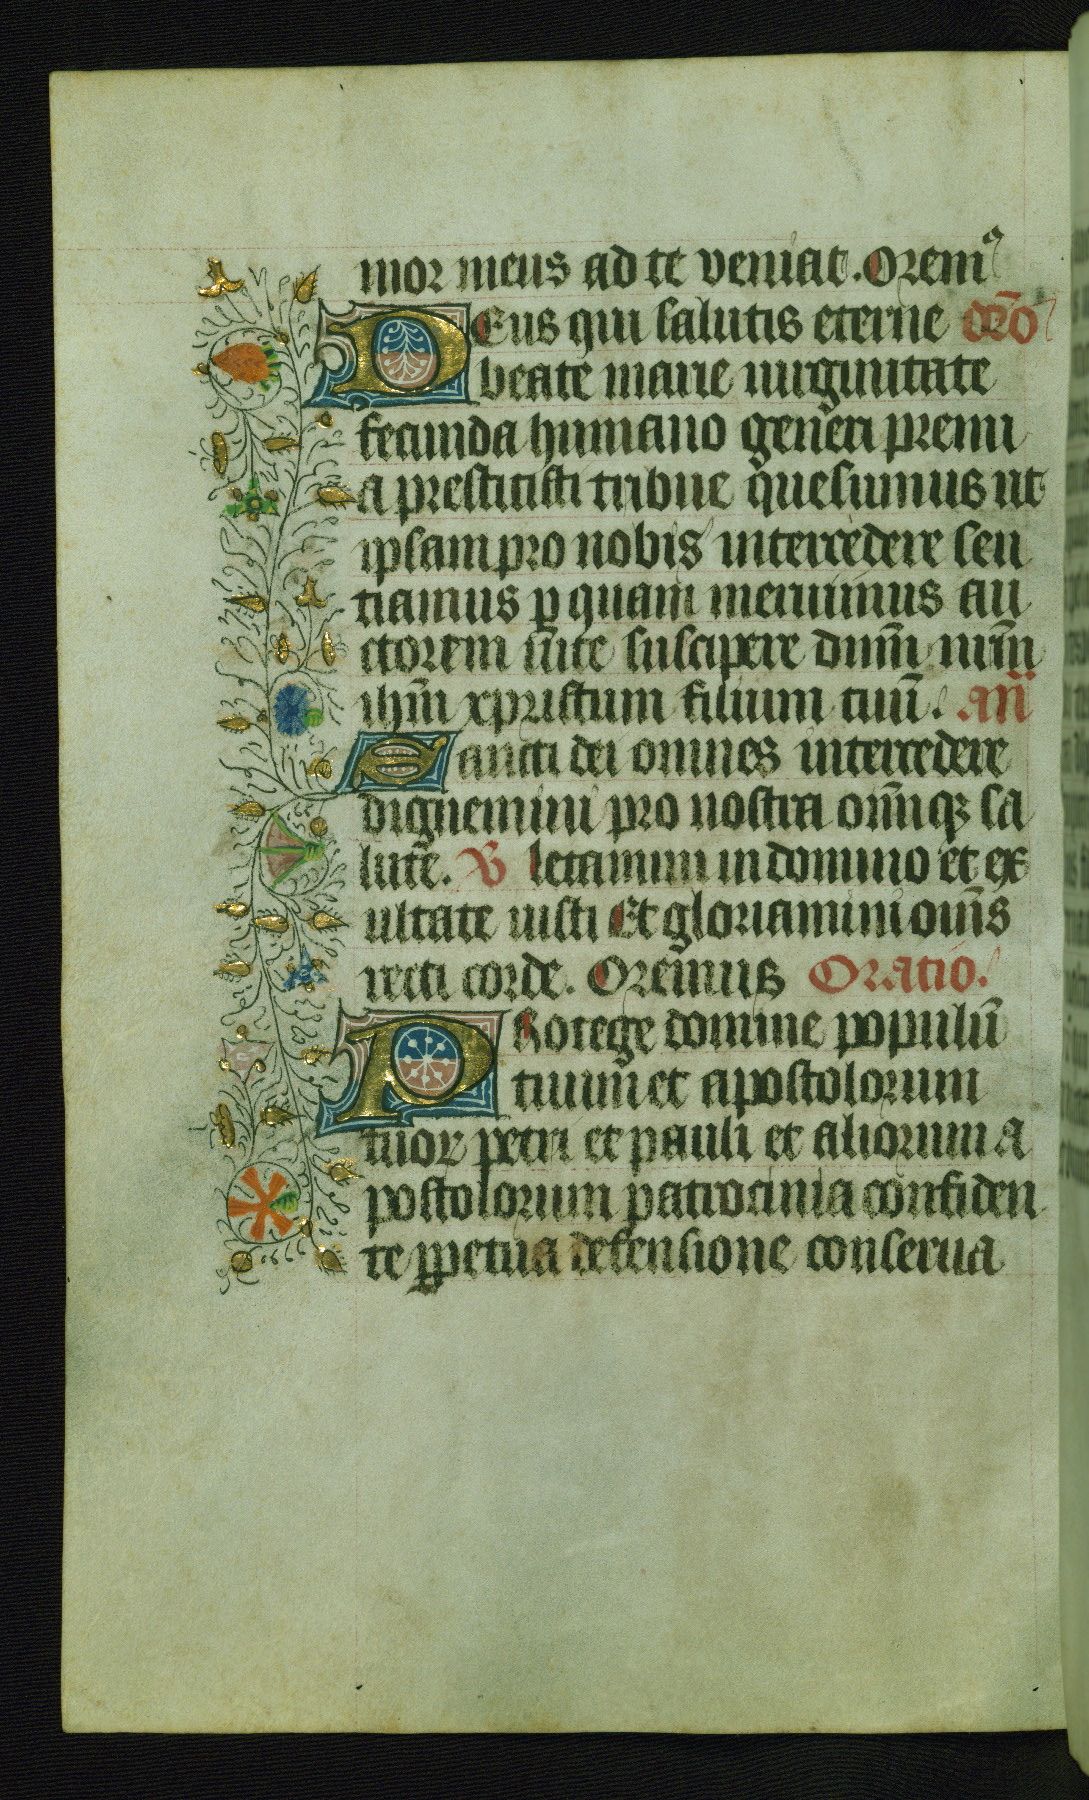 mor meus ad te veniat. Orem9
Deus qui salutis eterne or̄o
beate marie uirginitate
fecunda humano generi premi
a prestitisti tribue quesumus ut
ipsam pro nobis intercedere sen
tiamus ꝑ quam meruimus au
ctorem uite suscipere dnm̄ nr̄m
ihm̄ xpristum filium tuū. An̄
Sancti dei omnes intercedere
dignemini pro nostra omn̄iqꝫ sa
lute. ℣ letamini in domino et ex
ultate iusti Et gloriamini om̄s
recti corde. Oremus Oratio.
Protege domine populū
tuum et apostolorum
tuoꝝ petri et pauli et aliorum a
postolorum patrocinia confiden
te ꝑpetua defensione conserua